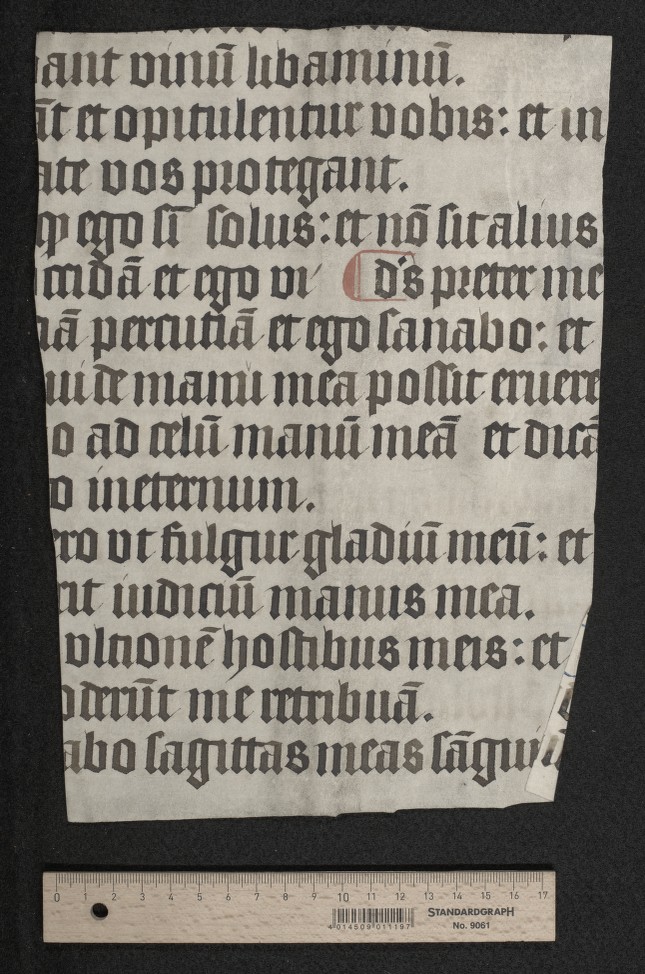 ant vinū libaminū.
āt et opitulentur vobis: et in
ate vos protegant.
ꝙ ego sī solus: et nō sit alius
ccidā et ego vi d's preter me
iā percutiā et ego sanabo: et
ui de manu mea possit eruere
o ad celū manū meā et dicā
o ineternum.
ero vt fulgur gladiū meū: et
rit iudiciū manus mea.
vltionē hostibus meis: et
oderūt me retribuā.
abo sagittas meas sāgui
0 1 2 3 4 5 6 7 8 9 10 11 12 13 14 15 16 17
STANDARDGRAPH
No. 9061
4 014509 011197